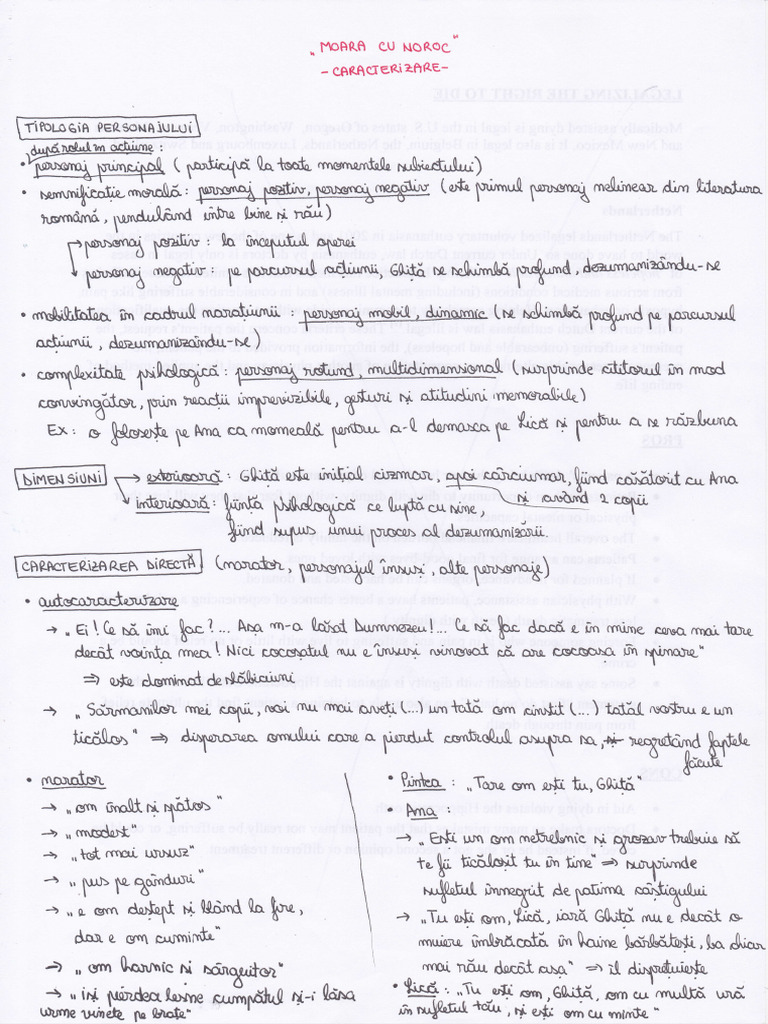 „MOARA CU NOROC"
- CARACTERIZARE -
TIPOLOGIA PERSONAJULUI
după rolul în acțiune:
• personaj principal ( participă la toate momentele subiectului)
• semnificație morală : personaj pozitiv, personaj negativ ( este primul personaj nelinear din literatura
română, pendulând între bine și rău )
→ personaj pozitiv : la începutul operei
→ personaj negativ : pe parcursul acțiunii, Ghiță se schimbă profund, dezumanizându-se
• mobilitatea în cadrul narațiunii : personaj mobil, dinamic ( se schimbă profund pe parcursul
acțiunii, dezumanizându-se )
• complexitate psihologică : personaj rotund, multidimensional ( surprinde cititorul în mod
convingător, prin reacții imprevizibile, gesturi și atitudini memorabile)
Ex : o folosește pe Ana ca momeală pentru a-l demasca pe Lică și pentru a se răzbuna
DIMENSIUNI → exterioară : Ghiță este inițial cizmar, apoi cârciumar, fiind căsătorit cu Ana
și având 2 copii
→ interioară : ființă psihologică ce luptă cu sine,
fiind supus unui proces al dezumanizării.
CARACTERIZAREA DIRECTĂ (narator, personajul însuși, alte personaje)
• autocaracterizare
→ „Ei ! Ce să îmi fac ?... Așa m-a lăsat Dumnezeu !... Ce să fac dacă e în mine ceva mai tare
decât voința mea ! Nici cocoșatul nu e însuși vinovat că are cocoasa în spinare"
⇒ este dominat de slăbiciuni
→ „Sărmanilor mei copii, voi nu mai aveți (...) un tată om cinstit (...) tatăl vostru e un
ticălos" ⇒ disperarea omului care a pierdut controlul asupra sa, regretând faptele
făcute
• narator
→ „om înalt și spătos"
→ „modest"
→ „tot mai ursuz"
→ „pus pe gânduri"
→ „e om deștept și blând la fire,
dar e om cuminte"
→ „om harnic și sârguitor"
→ „își pierdea lesne cumpătul și-i lăsa
urme vinete pe brațe"
• Pintea : „Tare om ești tu, Ghiță"
• Ana :
→ „Ești un om netrebnic și groaznic trebuie să
te fii ticăloșit tu în tine" ⇒ surprinde
sufletul înnegrit de patima câștigului
→ „Tu ești om, Lică, iară Ghiță nu e decât o
muiere îmbrăcată în haine bărbătești, ba chiar
mai rău decât așa" ⇒ îl disprețuiește
• Lică : „Tu ești om, Ghiță, om cu multă ură
în sufletul tău, și ești om cu minte"